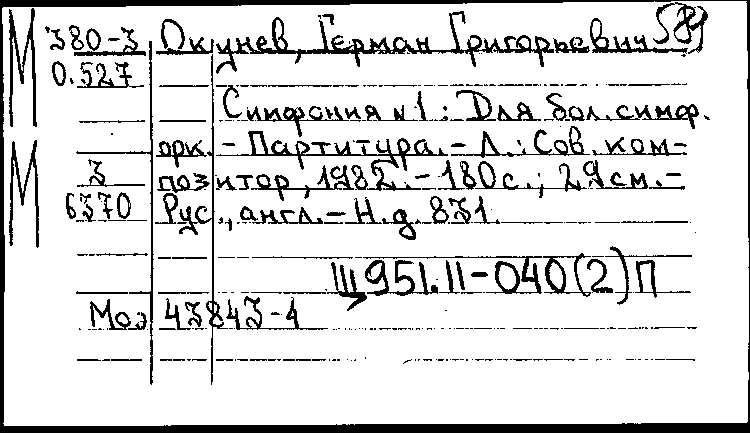 М 380-3 Окунев, Герман Григорьевич
О.527
Симфония №1: Для бол. симф.
орк. - Партитура. - Л.: Сов. ком-
М 3 позитор, 1982. - 180 с.; 29 см. -
6370 Рус., англ. - Н.д. 831.
Щ951.11-040(2)П
Моэ 43843-1